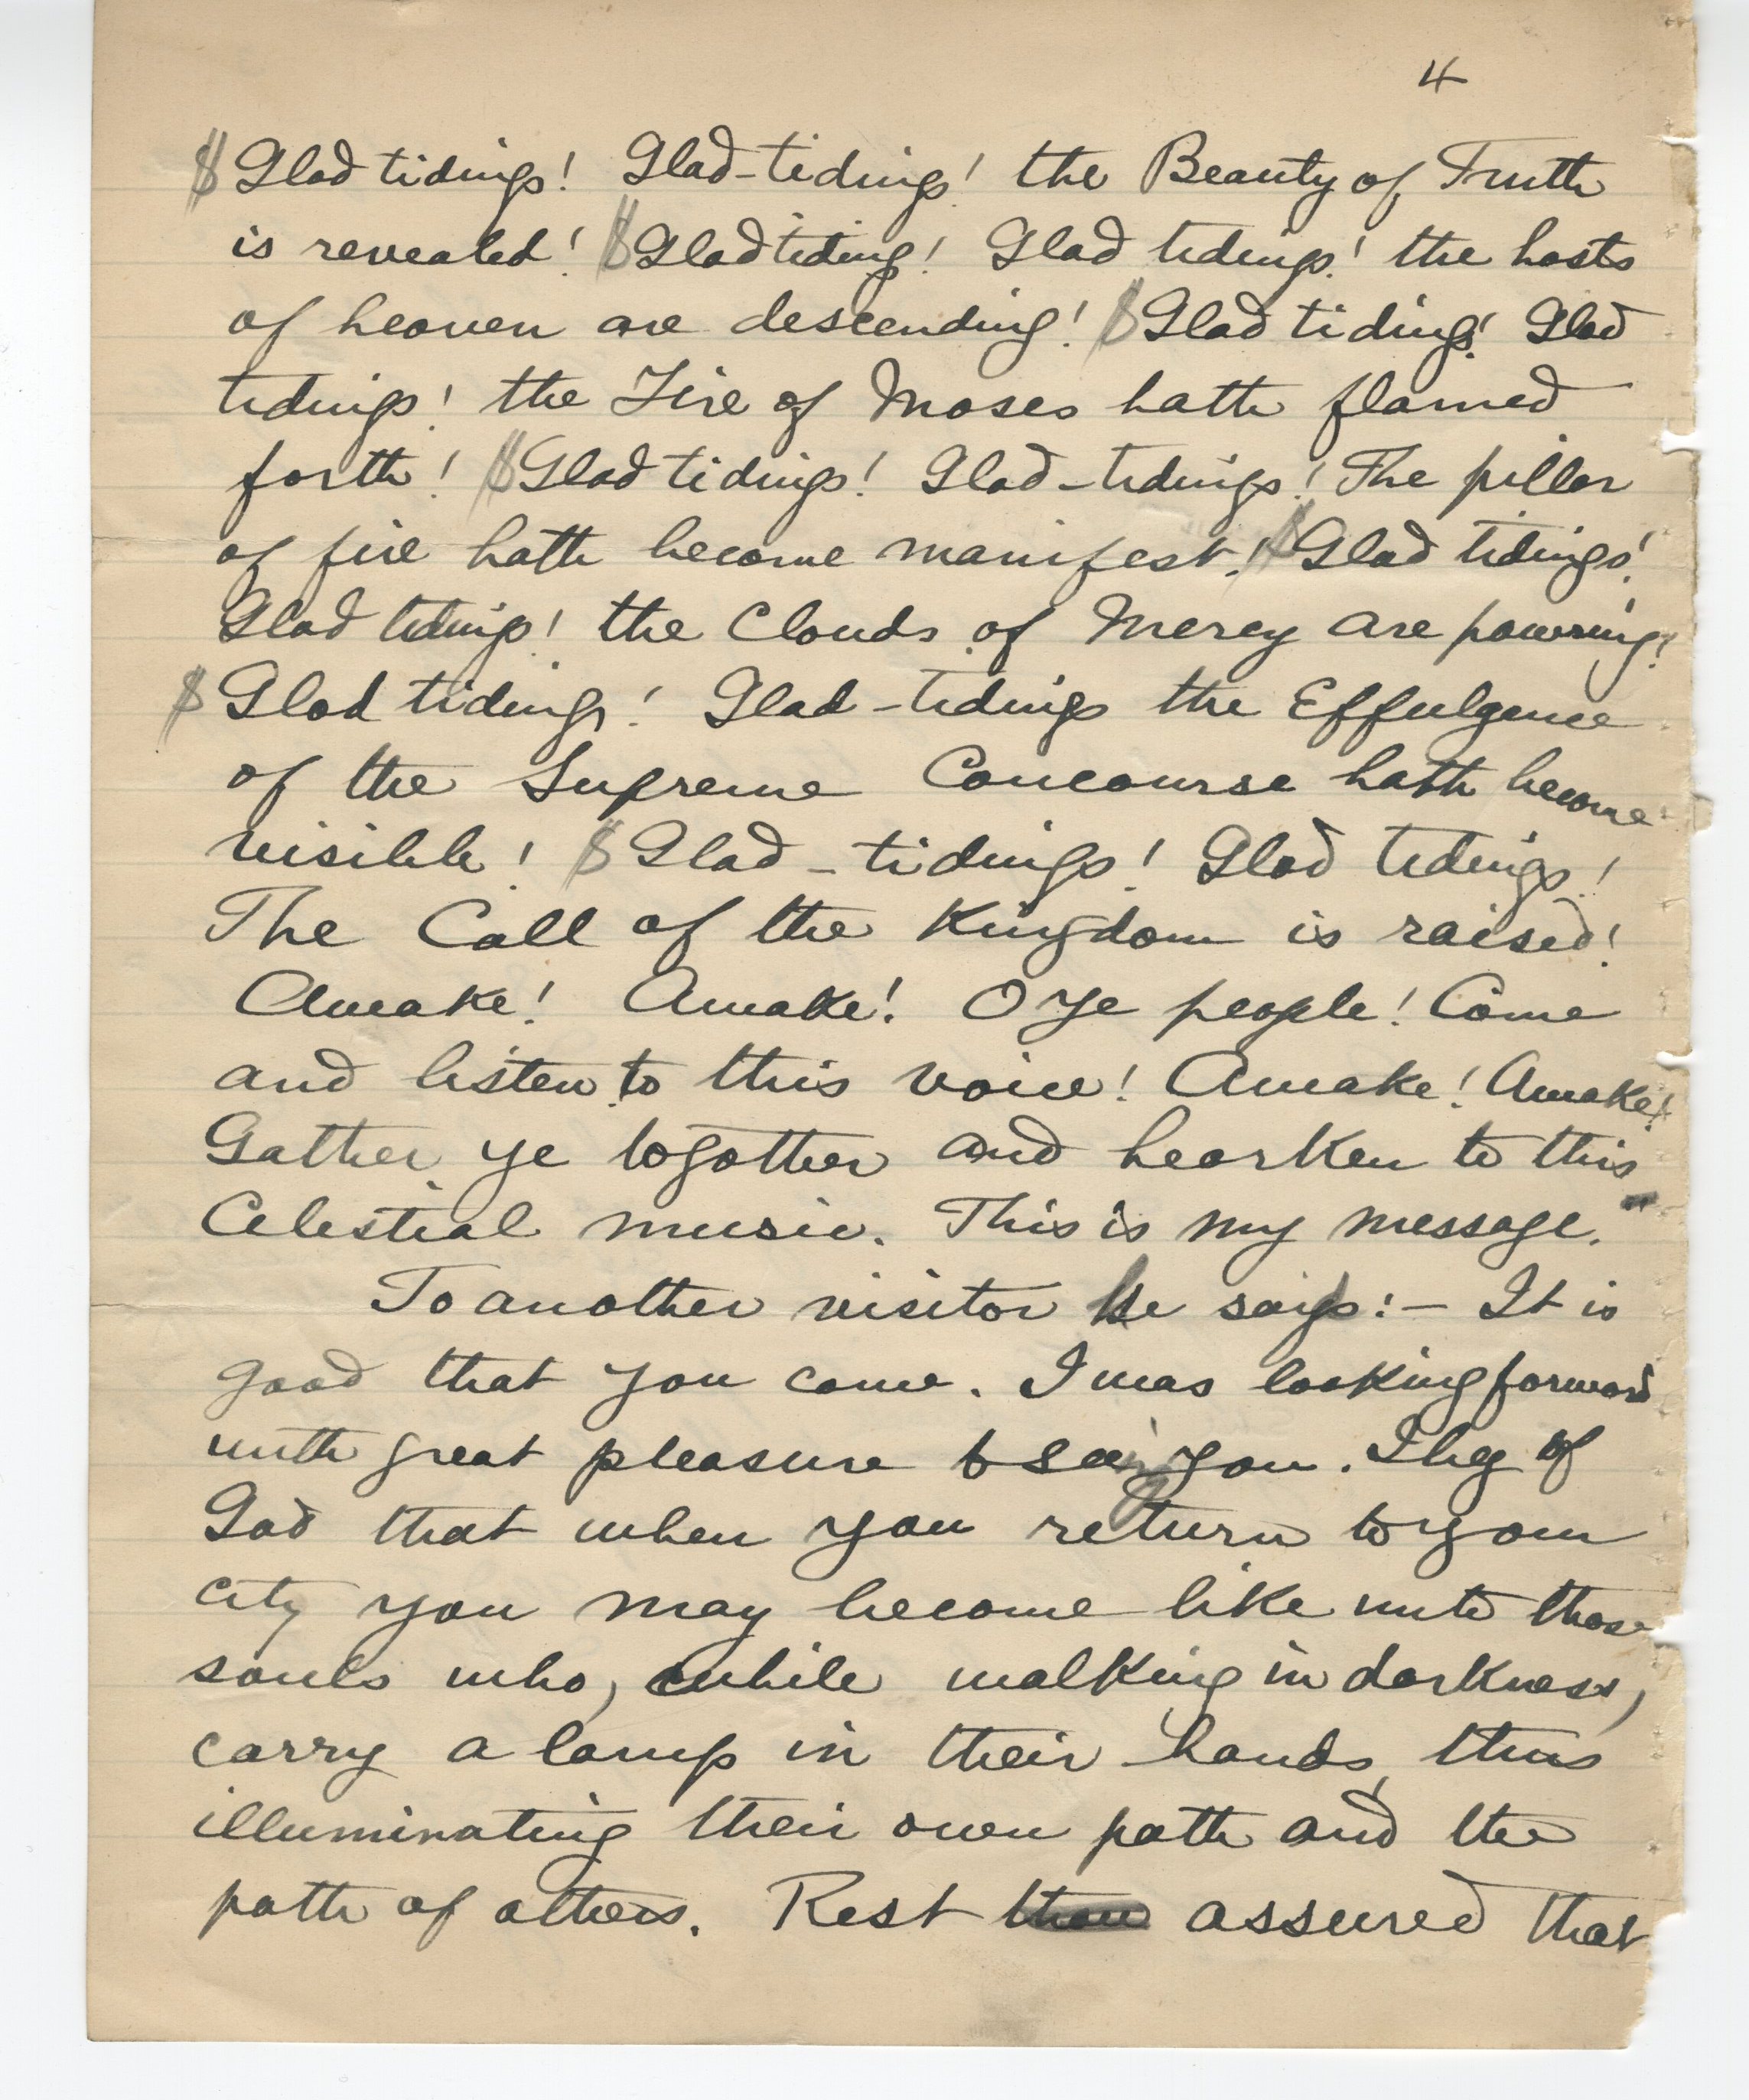 4
Glad tidings! Glad-tidings! the Beauty of Truth
is revealed! Glad tiding! Glad tidings! the hosts
of heaven are descending! Glad tidings! Glad
tidings! the Fire of Moses hath flamed
forth! Glad tidings! Glad-tidings! The pillar
of fire hath become manifest! Glad tidings!
Glad tidings! the Clouds of Mercy are pouring!
Glad tidings! Glad-tidings the Effulgence
of the Supreme Concourse hath become
visible! Glad-tidings! Glad tidings!
The Call of the Kingdom is raised!
Awake! Awake! O Ye people! Come
and listen to this voice! Awake! Awake!
Gather ye together and hearken to this
Celestial music. This is my message."
To another visitor He says:- It is
good that you came. I was looking forward
with great pleasure to seeing you. I beg of
God that when you return to your
city you may become like unto those
souls who, while walking in darkness,
carry a lamp in their hands, thus
illuminating their own path and the
path of others. Rest thou assured that